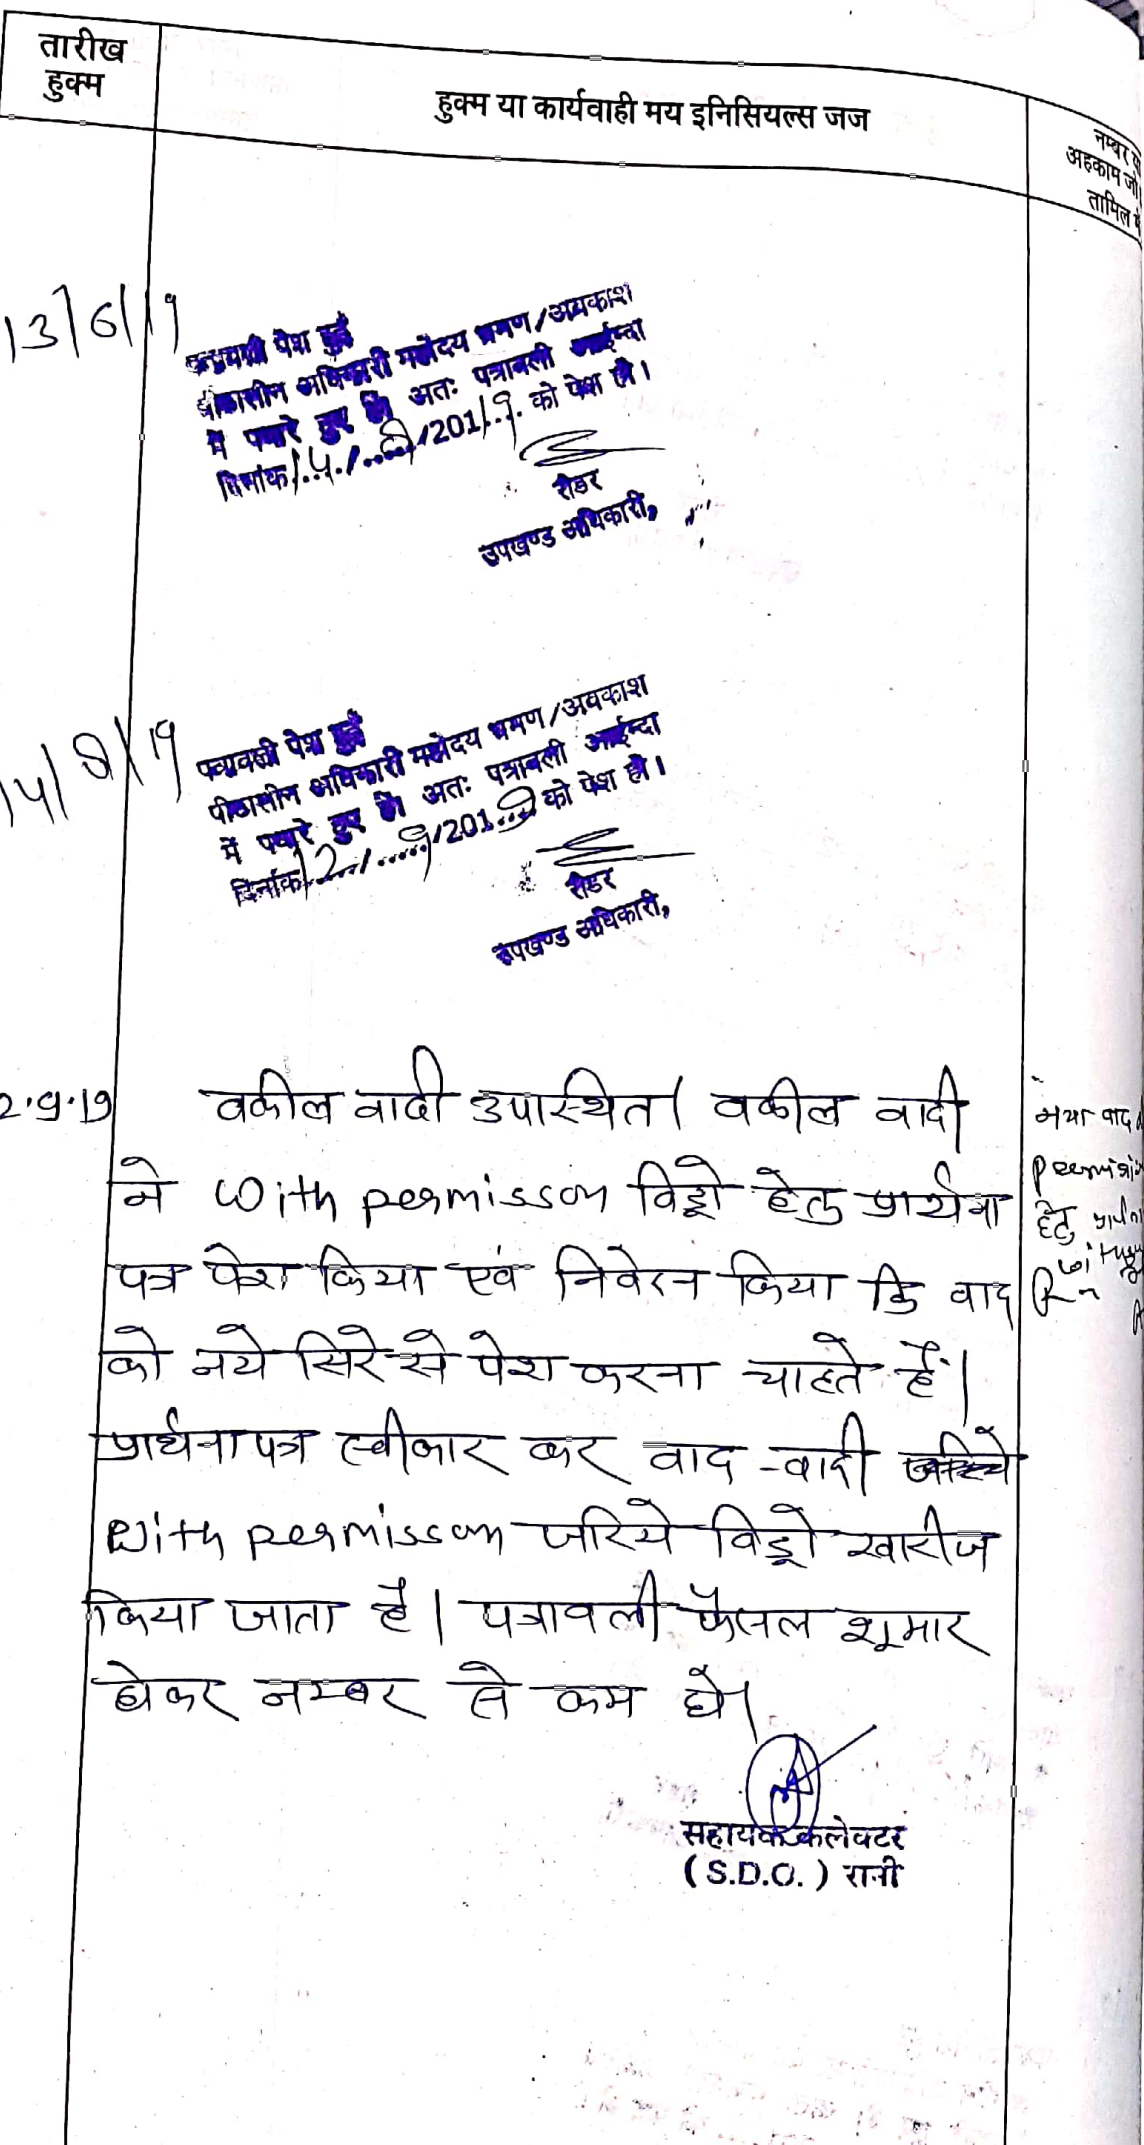 तारीख
हुक्म
हुक्म या कार्यवाही मय इनिसियल्स जज
नम्बर
अहकाम जो
तामिल
13/6/19
पत्रावली पेश हुई
पीठासीन अधिकारी महोदय भ्रमण/अवकाश
में पधारे हुए है। अतः पत्रावली आईन्दा
दिनांक 14/8/2019 को पेश हो।
रीडर
उपखण्ड अधिकारी,
14/8/19
पत्रावली पेश हुई
पीठासीन अधिकारी महोदय भ्रमण/अवकाश
में पधारे हुए है। अतः पत्रावली आईन्दा
दिनांक 12/9/2019 को पेश हो।
रीडर
उपखण्ड अधिकारी,
2.9.19
वकील वादी उपास्थित। वकील वादी
ने with permisson विड्रो हेतु प्रार्थना
पत्र पेश किया एवं निवेदन किया कि वाद
को नये सिरे से पेश करना चाहते हैं।
प्रार्थना पत्र स्वीकार कर वाद-वादी जरिये
with permisson जरिये विड्रो खारीज
किया जाता है। पत्रावली फैसल शूमार
होकर नम्बर से कम हो।
नया वाद
permission
हेतु
सहायक कलेक्टर
(S.D.O.) रानी